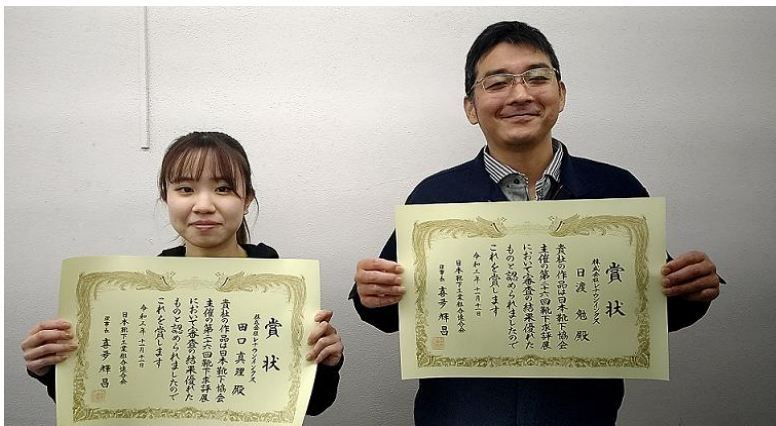 賞状
株式会社レナウンインクス
田口真理 殿
貴社の作品は日本靴下協会
主催の第二六回靴下求評展
において審査の結果優れた
ものと認められましたので
これを賞します
令和三年十一月十一日
日本靴下工業組合連合会
理事長 喜多輝昌
賞状
株式会社レナウンインクス
日渡勉 殿
貴社の作品は日本靴下協会
主催の第二六回靴下求評展
において審査の結果優れた
ものと認められましたので
これを賞します
令和三年十一月十一日
日本靴下工業組合連合会
理事長 喜多輝昌